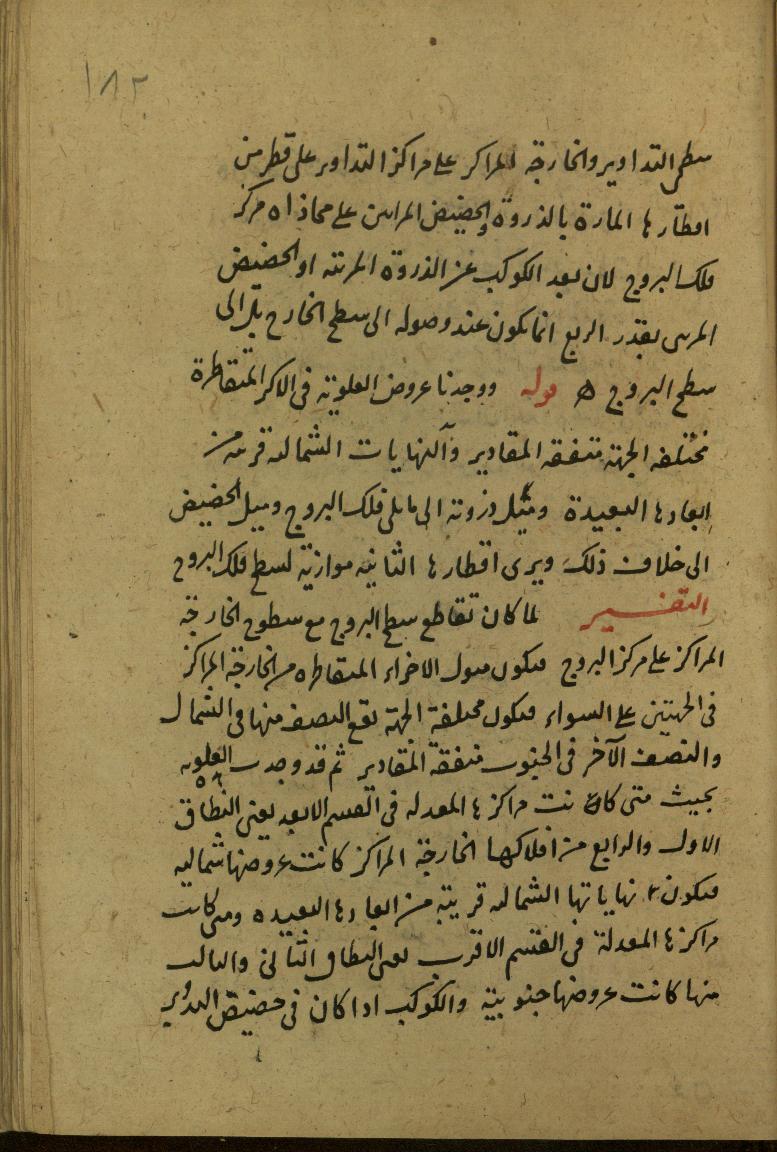 ١٨٢
سطحي التداوير والخارجة المراكز على مراكز التداوير على قطر من
اقطارها المارة بالذروة والحضيض المرئيين على محاذاة مركز
فلك البروج لان بعد الكوكب عن الذروة المرئية او الحضيض
المرئي بقدر الربع انما يكون عند وصوله الى سطح الخارج بل الى
سطح البروج ه قوله ووجدنا عروض العلوية في الاكر المتقاطرة
مختلفة الجهة متفقة المقادير والنهايات الشمالية قريبة من
ابعادها البعيدة وميل ذروته الى ما يلي فلك البروج وميل الحضيض
الى خلاف ذلك ويرى اقطارها الثانية موازية لسطح فلك البروج
التفسير لما كان تقاطع سطح البروج مع سطوح الخارجة
المراكز على مركز البروج فيكون ميول الاجزاء المتقاطرة من الخارجة المراكز
في الجهتين على السواء فيكون مختلفة الجهة يقع النصف منها في الشمال
والنصف الآخر في الجنوب متفقة المقادير ثم قد وجدت العلوية
بحيث متى كانت مراكزها المعدلة في القسم الابعد يعني النطاق
الاول والرابع من افلاكها الخارجة المراكز كانت عروضها شمالية
فيكون نهاياتها الشمالية قريبة من ابعادها البعيدة ومتى كانت
مراكزها المعدلة في القسم الاقرب يعني النطاق الثاني والثالث
منها كانت عروضها جنوبية والكوكب اذا كان في حضيض التدوير